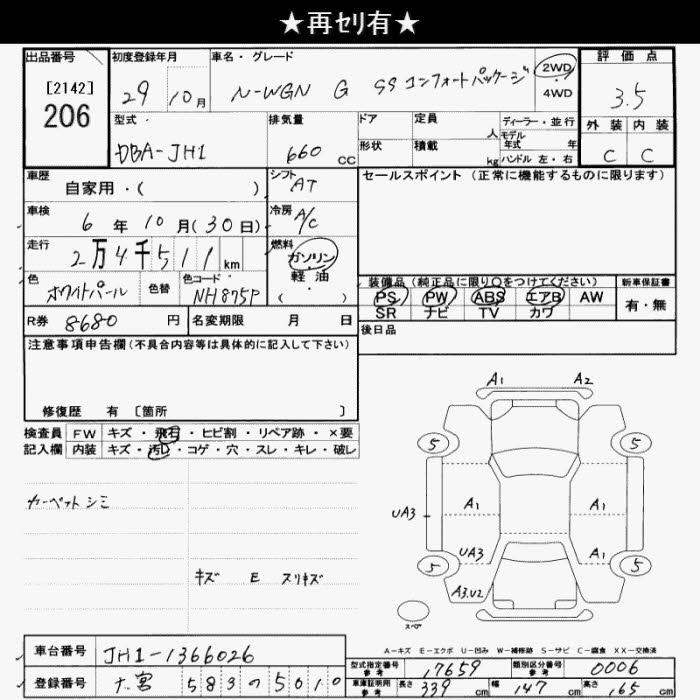 ★再ｾﾘ有★
出品番号
[2142]
206
初度登録年月
29 10月
車名・グレード
N-WGN G SSコンフォートパッケージ
2WD
4WD
評価点
3.5
外装 内装
C C
型式
DBA-JH1
排気量
660 cc
ドア
定員
人
形状
積載
kg
ディーラー・並行
モデル年式 年
ハンドル 左・右
車歴
自家用・( )
シフト
AT
セールスポイント (正常に機能するものに限ります)
車検
6年10月(30日)
冷房
A/C
走行
2万4千511km
燃料
ガソリン
軽・油
( )
色
ホワイトパール
色替
色コード
NH875P
装備品 (純正品に限り○をつけてください)
PS PW ABS エアB AW
SR ナビ TV カワ
新車保証書
有・無
R券 8680 円
名変期限 月 日
後日品
注意事項申告欄(不具合内容等は具体的に記入して下さい)
修復歴 有 〔箇所 〕
検査員記入欄
FW キズ・飛石・ヒビ割・リペア跡・×要
内装 キズ・汚れ・コゲ・穴・スレ・キレ・破レ
カーペットシミ
キズ E スリキズ
A1 A2
5 5
UA3 A1 A1
UA3 A1
5 5
A3.U2
スペア
A-キズ E-エクボ U-凹み W-補修跡 S-サビ C-腐食 XX-交換済
車台番号 JH1-1366026
登録番号 大宮 583 の 5010
型式指定番号 参考 17659
類別区分番号 参考 0006
車庫証明用 参考 長さ 339cm 幅 147cm 高さ 165cm